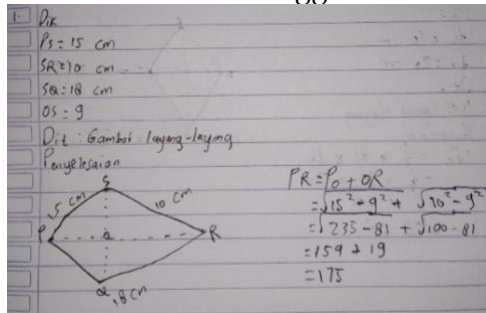 1. Dik
PS = 15 cm
SR = 10 cm
SQ = 18 cm
OS = 9
Dit : Gambar layang-layang
Penyelesaian
S
15 cm
10 cm
P
R
Q
18 cm
PR = PO + OR
= √15² - 9² + √10² - 9²
= √235 - 81 + √100 - 81
= 154 + 19
= 175